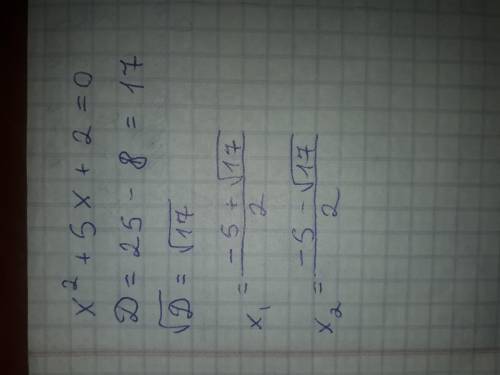 x² + 5x + 2 = 0
D = 25 - 8 = 17
√D = √17
x₁ = (-5 + √17)/2
x₂ = (-5 - √17)/2